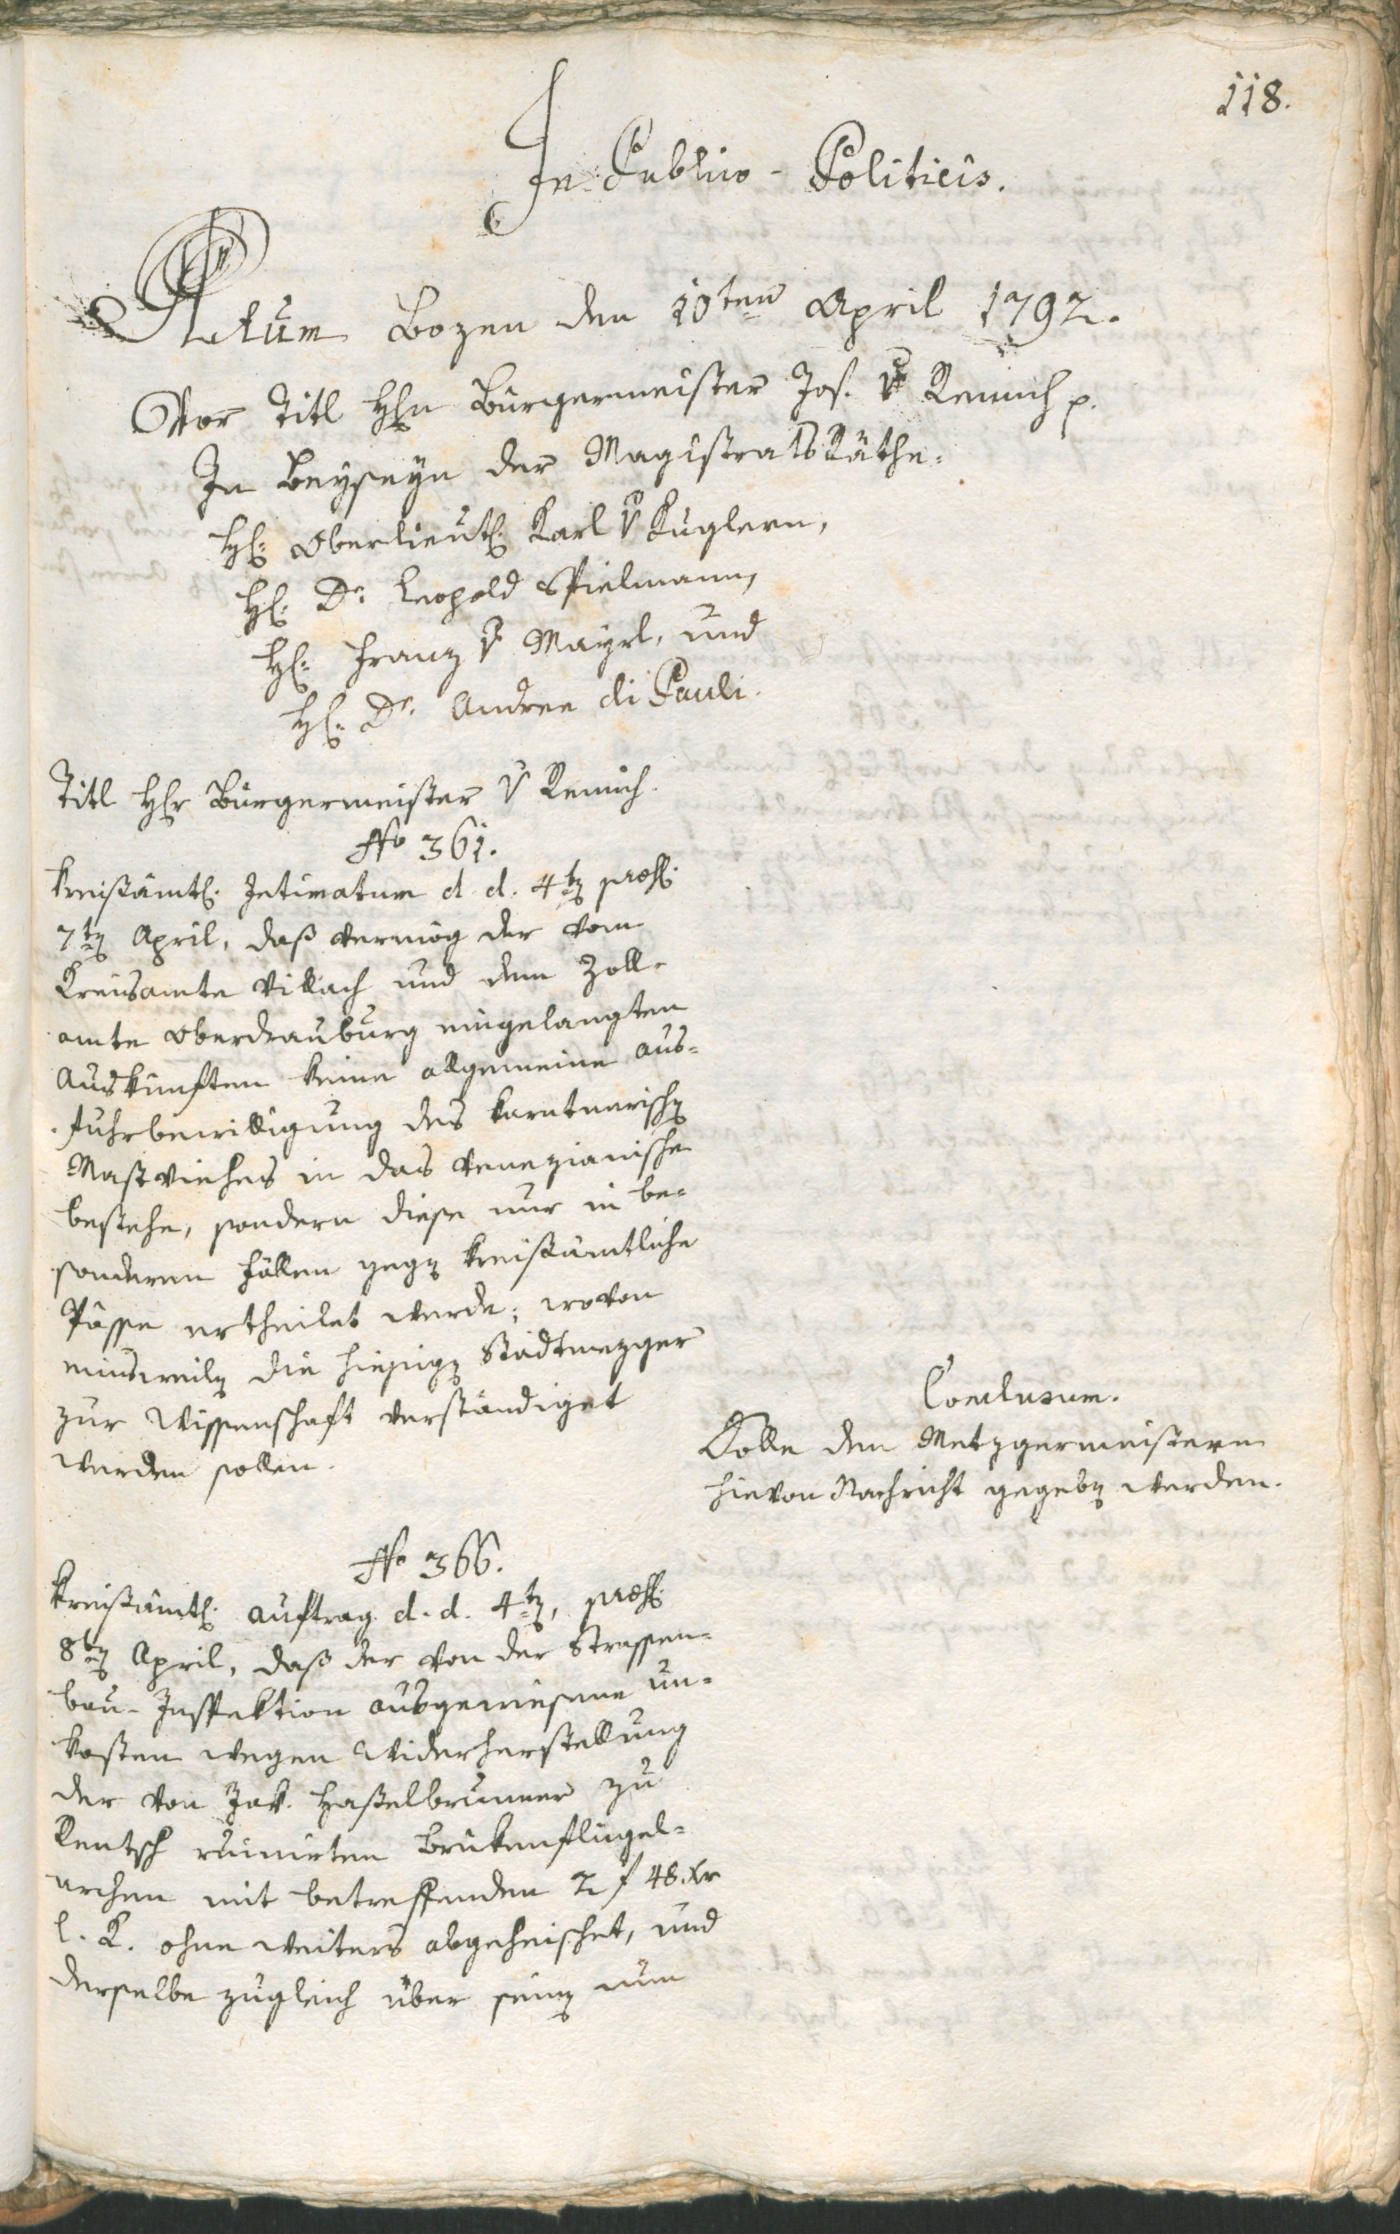 118.
In Publico-Politicis.
Actum Bozen den 10ten April 1792.
Vor Titl Hℓn Bürgermeister Jos. v Remich p.
In Beyseyn der Magistrats Räthe.
Hℓ: Oberlieutℓ. Karl v Kuglern,
Hℓ: Dr. Leopold Spielmann,
Hℓ: Franz v Mayrl, und
Hℓ: Dr. Andree di Pauli.
Titl Hℓr Bürgermeister v Remich.
No 361.
Kreißämtℓ. Intimatum d. d. 4tn præsℓ.
7tn April, daß vermög der vom
Kreisamte Villach und dem Zoll-
amte Oberdrauburg eingelangten
Auskünften keine allgemeine Aus-
fuhrbewilligung des karntnerischn
Mastviehes in das venezianische
bestehe, sondern diese nur in be-
sonderen Fällen gegn kreißämtliche
Pässe ertheilet werde; wovon
einsweiln die hiesign Stadtmezger
zur Wissenschaft verständiget
werden sollen.
Conclusum.
Solle den Metzgermeistern
hievon Nachricht gegebn werden.
No 366.
Kreißämtℓ. Auftrag d. d. 4tn, præsℓ.
8tn April, daß der von der Strassen-
bau-Inspektion ausgewiesene Un-
kosten wegen Widerherstellung
der von Jak. Haßelbrunner zu
Rentsch ruinirten Brükenflügel-
archen mit betreffenden 2 f 48 Xr
l. K. ohne weiters abgeheischet, und
derselbe zugleich über sein nun